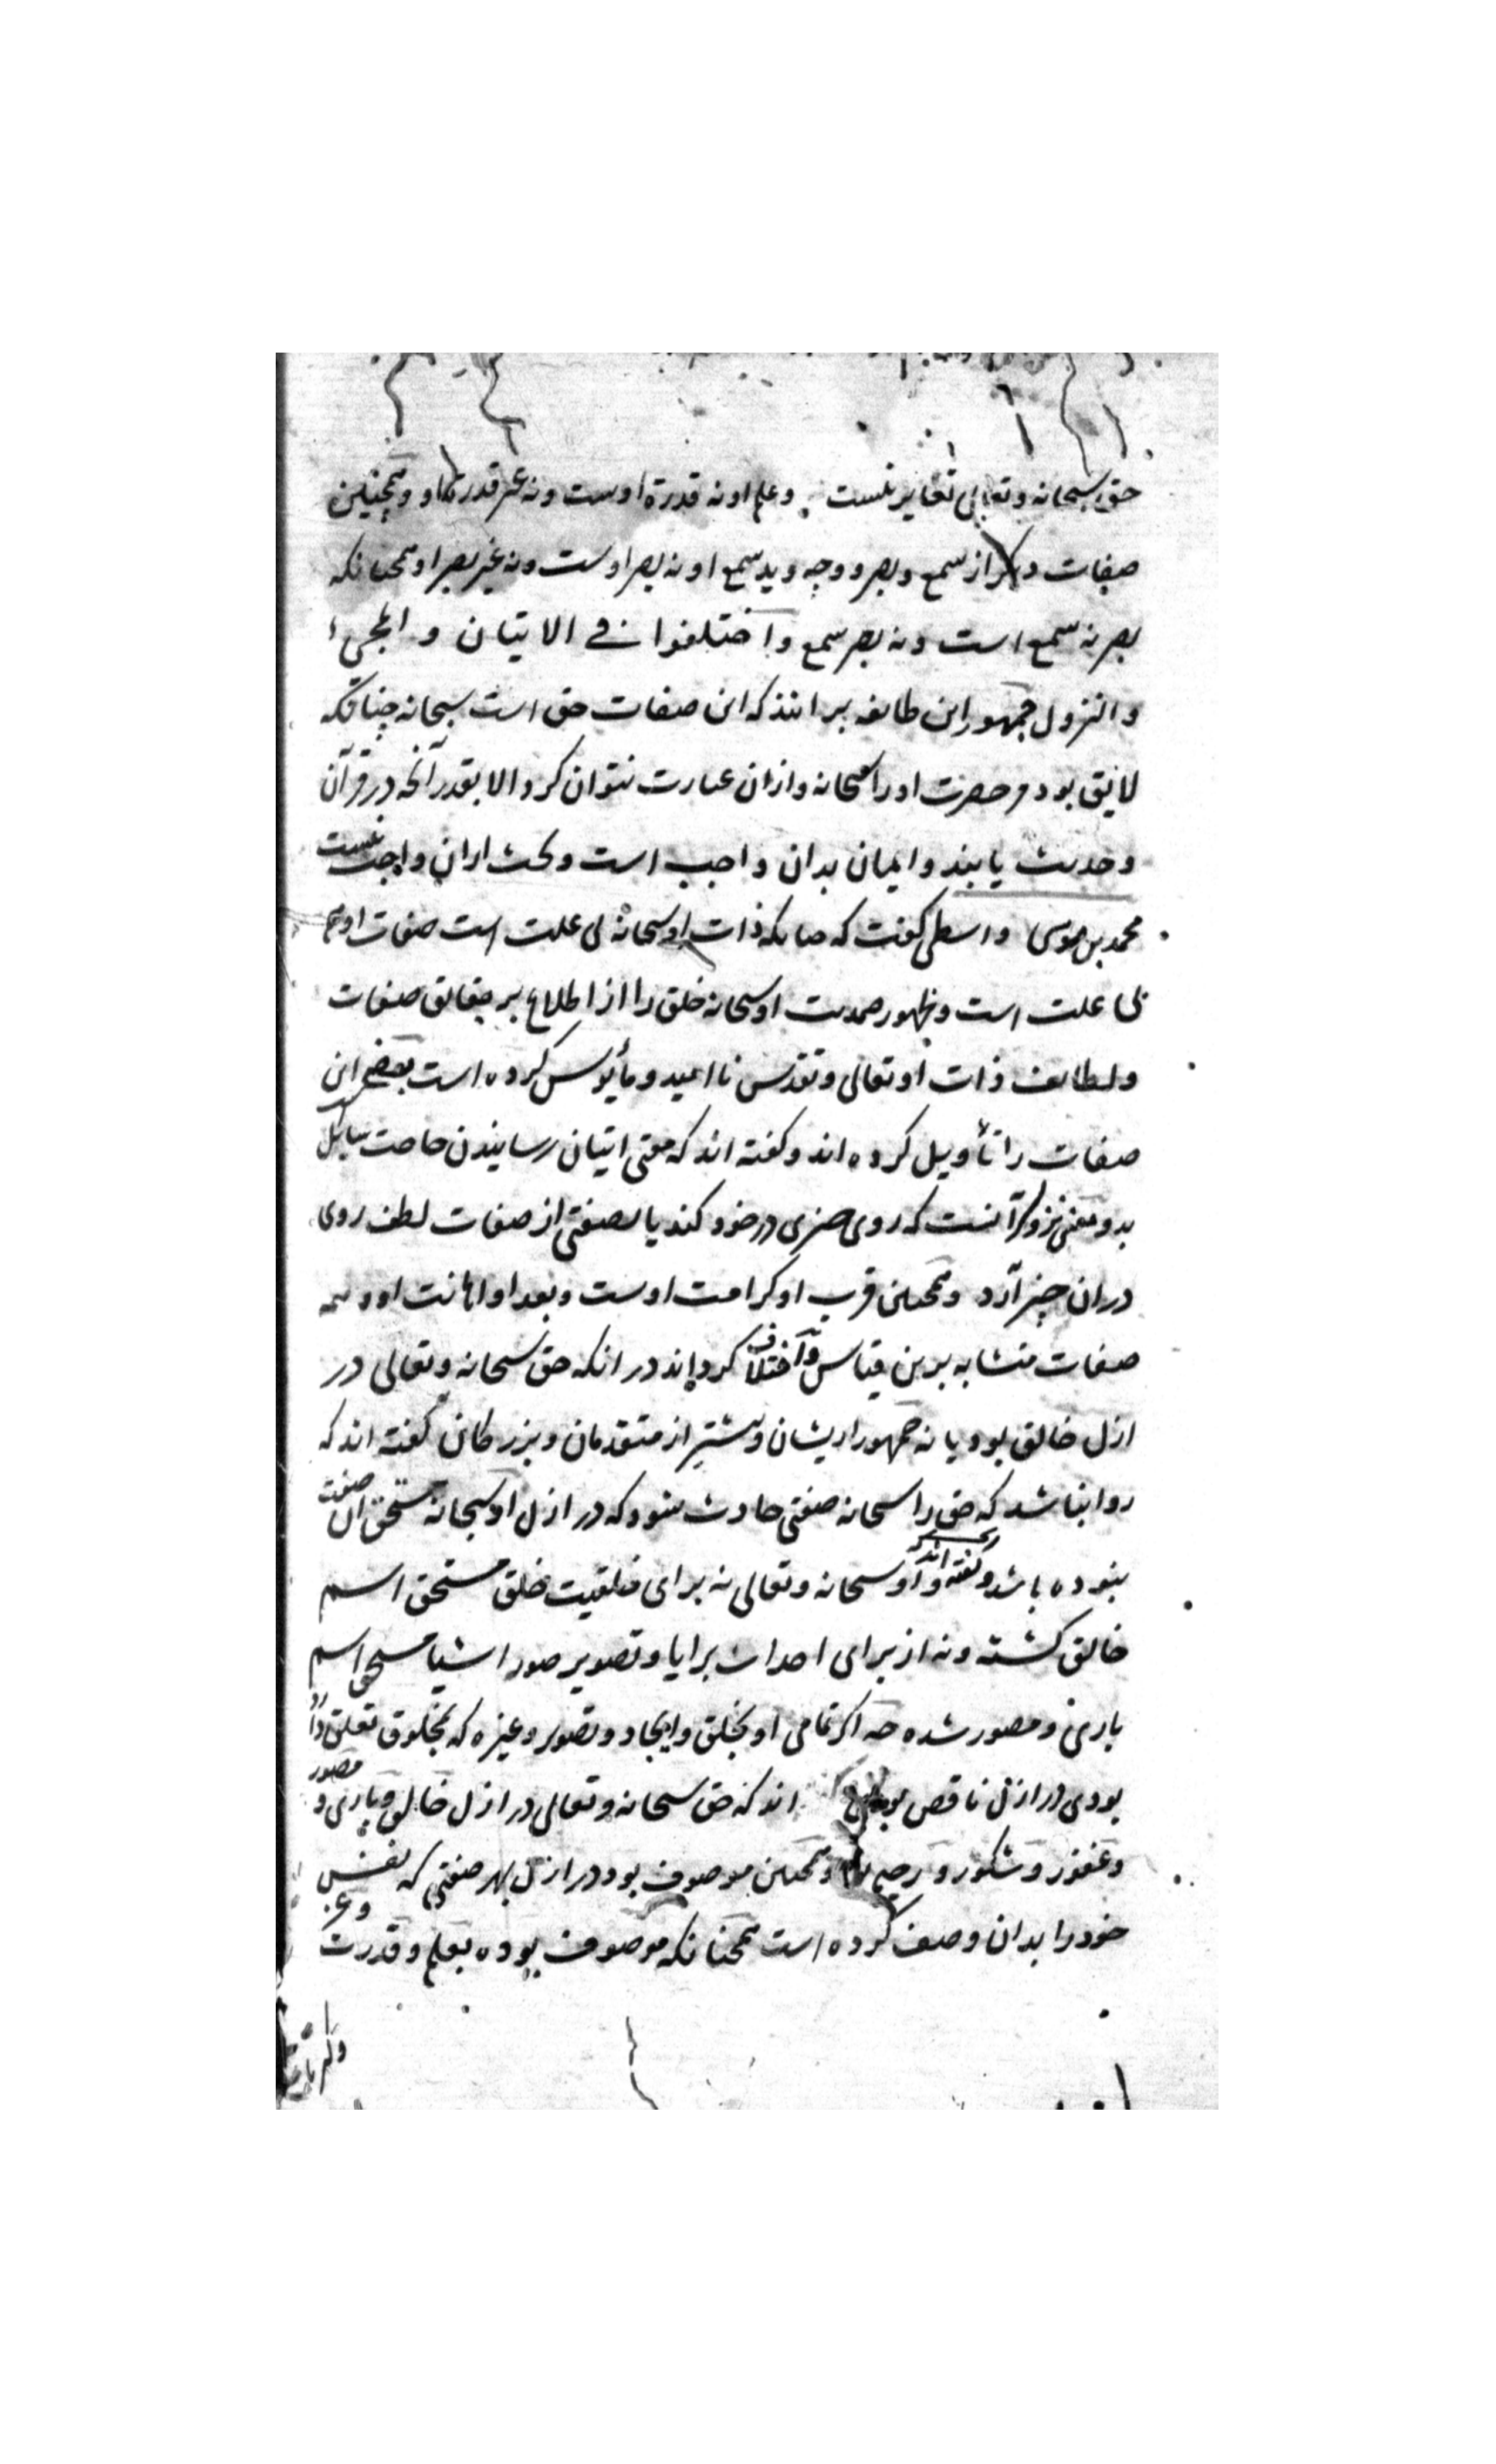 حق سبحانه و تعالی تغایر نیست و علم او نه قدرة اوست و نه غیر قدرت او و همچنین
صفات دیگر از سمع و بصر و وجه و ید سمع او نه بصر اوست و نه غیر بصر او همچنانکه
بصر نه سمع است و نه بصر سمع و اختلفوا فی الاتیان و المجیء
و النزول جمهور این طایفه برانند که این صفات حق است سبحانه چنانکه
لایق بود مر حضرت او را سبحانه و ازان عبارت نتوان کرد الا بقدر آنچه در قرآن
و حدیث یابند و ایمان بدان واجب است و بحث ازان واجب نیست
محمد بن موسی واسطی گفت که چنانکه ذات او سبحانه بی علت است صفات او هم
بی علت است و ظهور صمدیت او سبحانه خلق را از اطلاع بر حقایق صفات
و لطایف ذات او تعالی و تقدس ناامید و مأیوس کرده است بعضی این
صفات را تأویل کرده اند و گفته اند که معنی اتیان رسانیدن حاجت سایل
بدو و معنی نزول آنست که روی چیزی در خود کند یا بصفتی از صفات لطف روی
دران چیز آرد و همچنین قرب او کرامت اوست و بعد او اهانت او و همه
صفات متشابه برین قیاس و اختلاف کرده اند در انکه حق سبحانه و تعالی در
ازل خالق بود یا نه جمهور ایشان و بیشتر از متقدمان و بزرگان گفته اند که
روا نباشد که حق را سبحانه صفتی حادث شود که در ازل او سبحانه مستحق آن صفت
نبوده باشد و گفته اند که او سبحانه و تعالی نه برای خلقیت خلق مستحق اسم
خالق گشته و نه از برای احداث برایا و تصویر صور اشیا مستحق اسم
باری و مصور شده چه اگر تمامی او بخلق و ایجاد و تصویر و غیره که بمخلوق تعلق دارد
بودی در ازل ناقص بودی اند که حق سبحانه و تعالی در ازل خالق و باری و مصور
و غفور و شکور و رحیم و همچنین موصوف بود در ازل بهر صفتی که نفس
خود را بدان وصف کرده است همچنانکه موصوف بوده بعلم و قدرت و عز